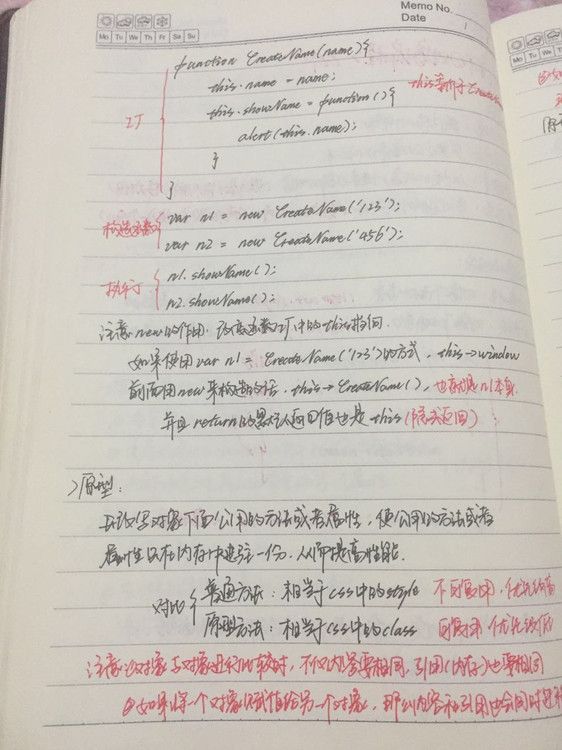 Memo No.
Date
Mo Tu We Th Fr Sa Su
function CreateName(name){
this.name = name;
this.showName = function(){
alert(this.name);
}
}
工厂
this等价于CreateNa
构造函数
var n1 = new CreateName('123');
var n2 = new CreateName('456');
执行
n1.showName();
n2.showName();
注意new的作用:改变函数工厂中的this指向.
如果使用var n1 = CreateName('123')的方式,this→window
前面用new来构造的话,this→CreateName(),也就是n1本身
并且return的默认返回值也是this(隐式返回)
>原型:
去改写对象下面公用的方法或者属性,使公用的方法或者
属性只在内存中建立一份,从而提高性能.
对比
普通方法:相当于css中的style 不可复用,优先级高
原型方法:相当于css中的class 可复用 优先级低
注意①对象与对象进行比较时,不仅内容要相同,引用(内存)也要相同
②如果将一个对象赋值给另一个对象,那么内容和引用也会同时